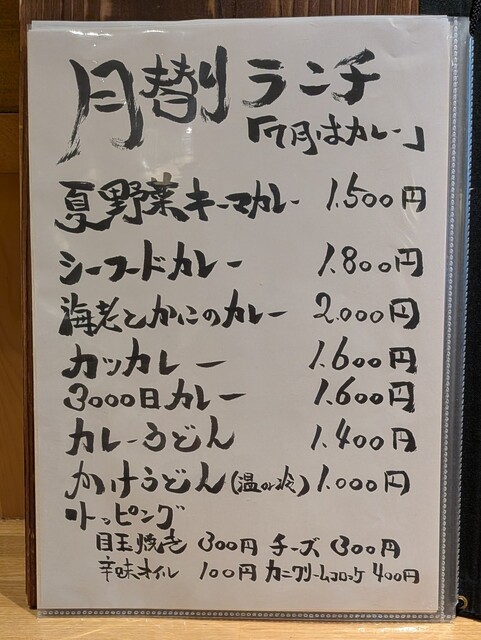 月替りランチ
「7月はカレー」
夏野菜キーマカレー 1.500円
シーフードカレー 1.800円
海老とかにのカレー 2.000円
カツカレー 1.600円
3000日カレー 1.600円
カレーうどん 1.400円
かけうどん(温or冷) 1.000円
トッピング
目玉焼き 300円 チーズ 300円
辛味オイル 100円 カニクリームコロッケ 400円